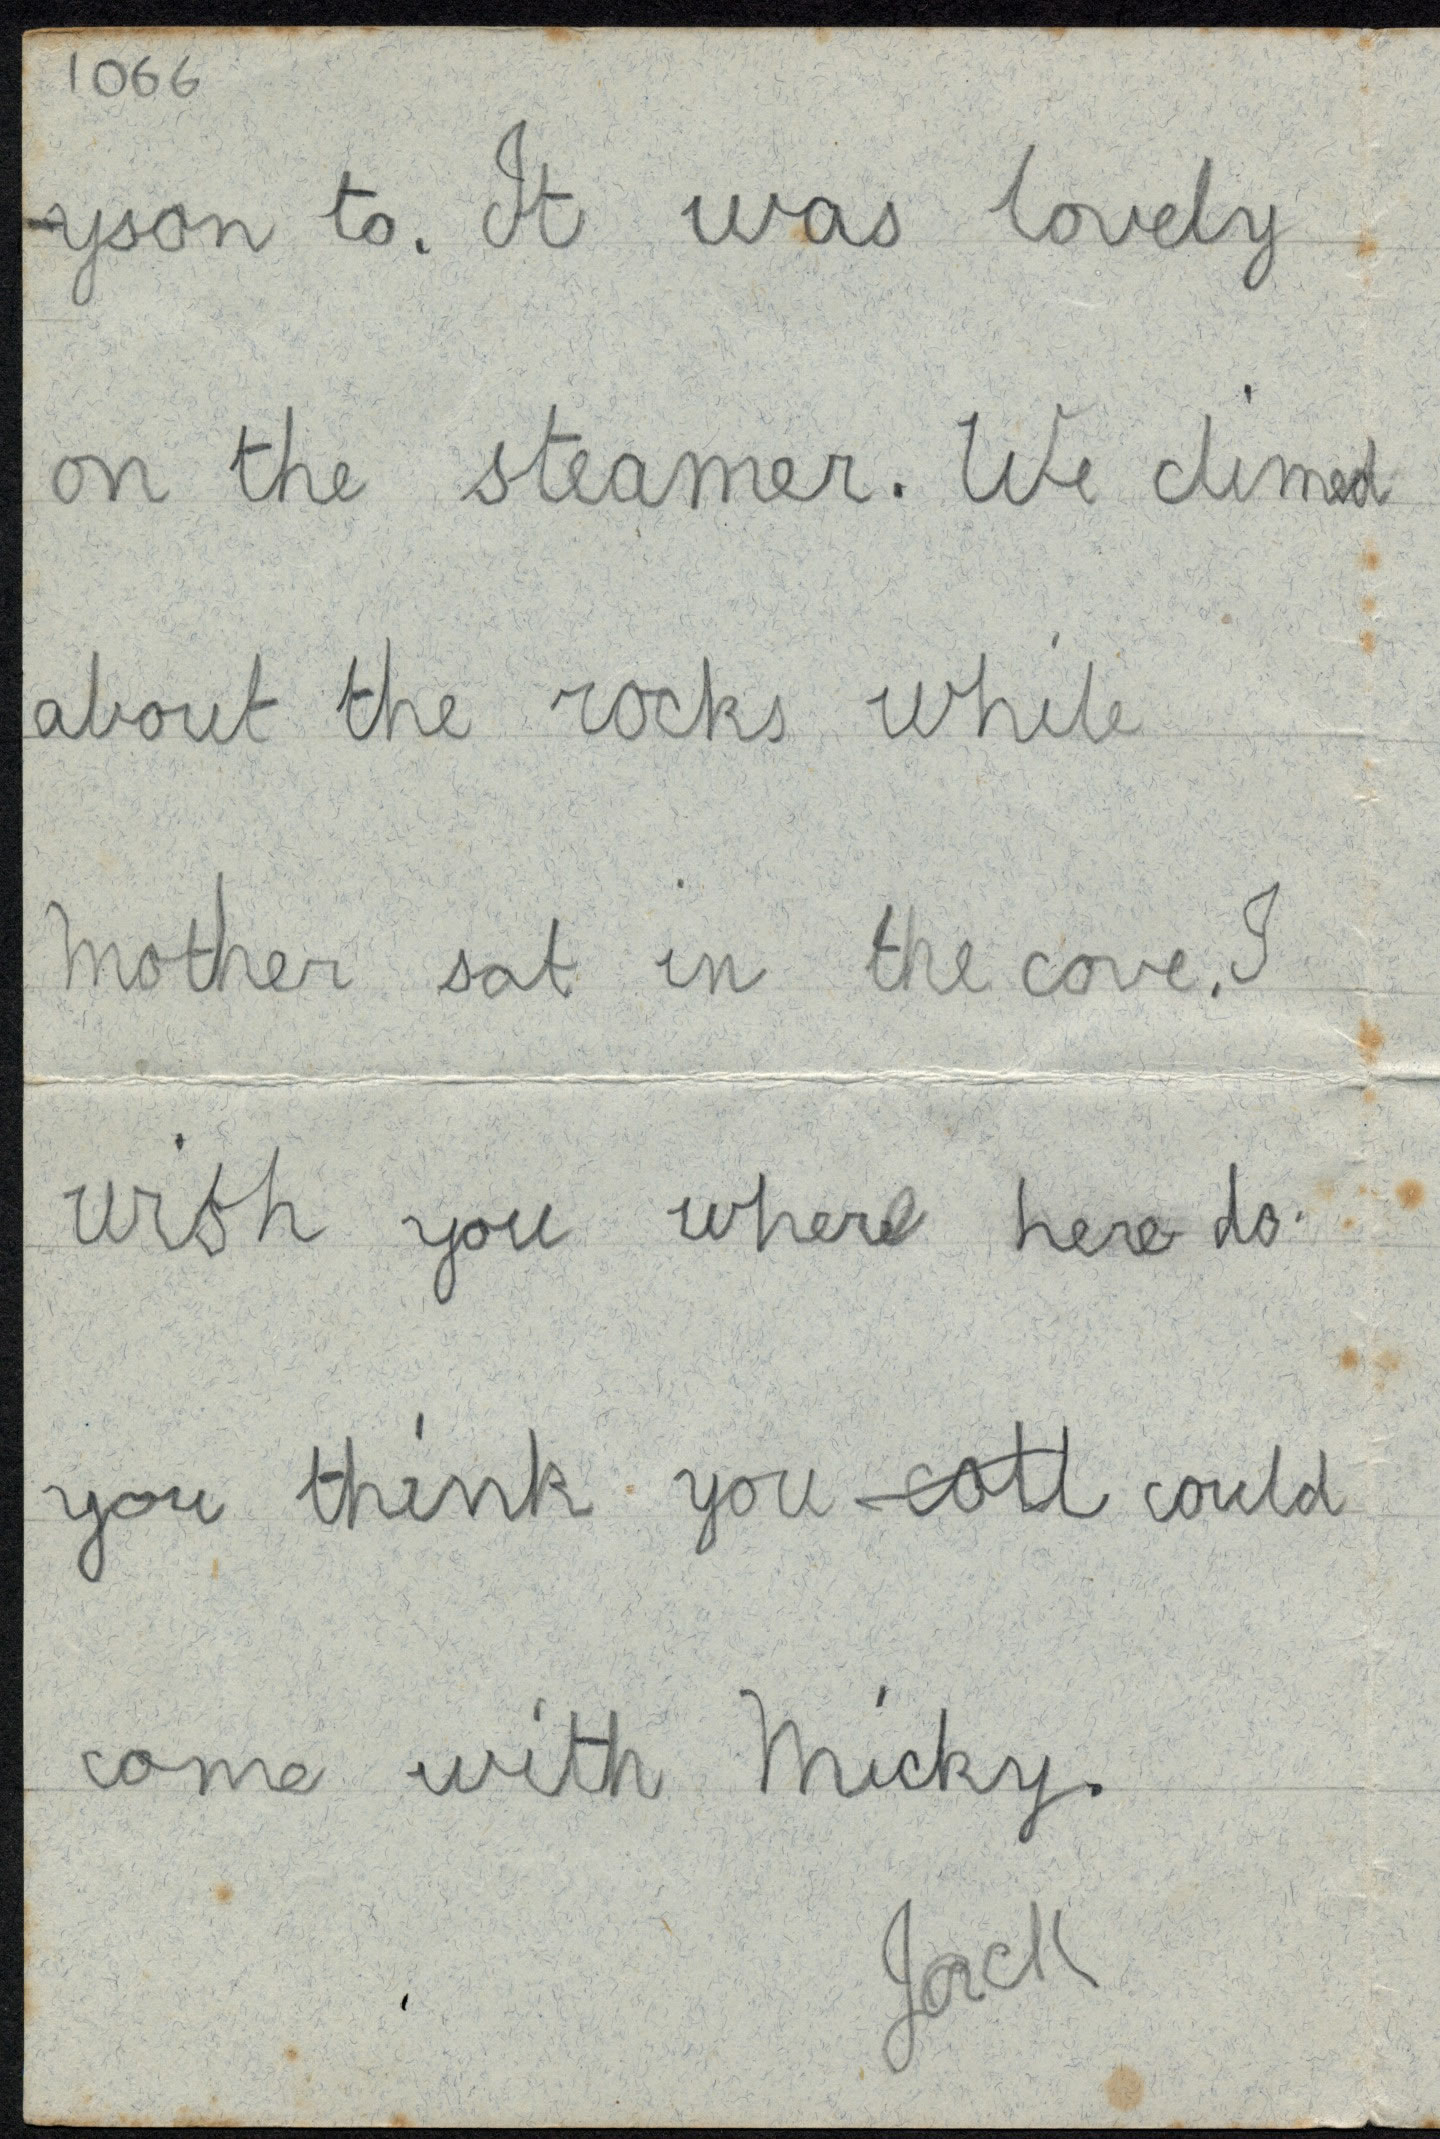 1066
-yson to. It was lovely
on the steamer. We climed
about the rocks while
Mother sat in the cove. I
wish you where here do
you think you cotl could
come with Micky.
Jack